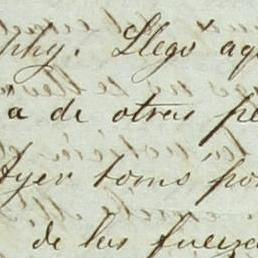 phy. Llegó aq
a de otras pe
Ayer tomo po
de las fuerza